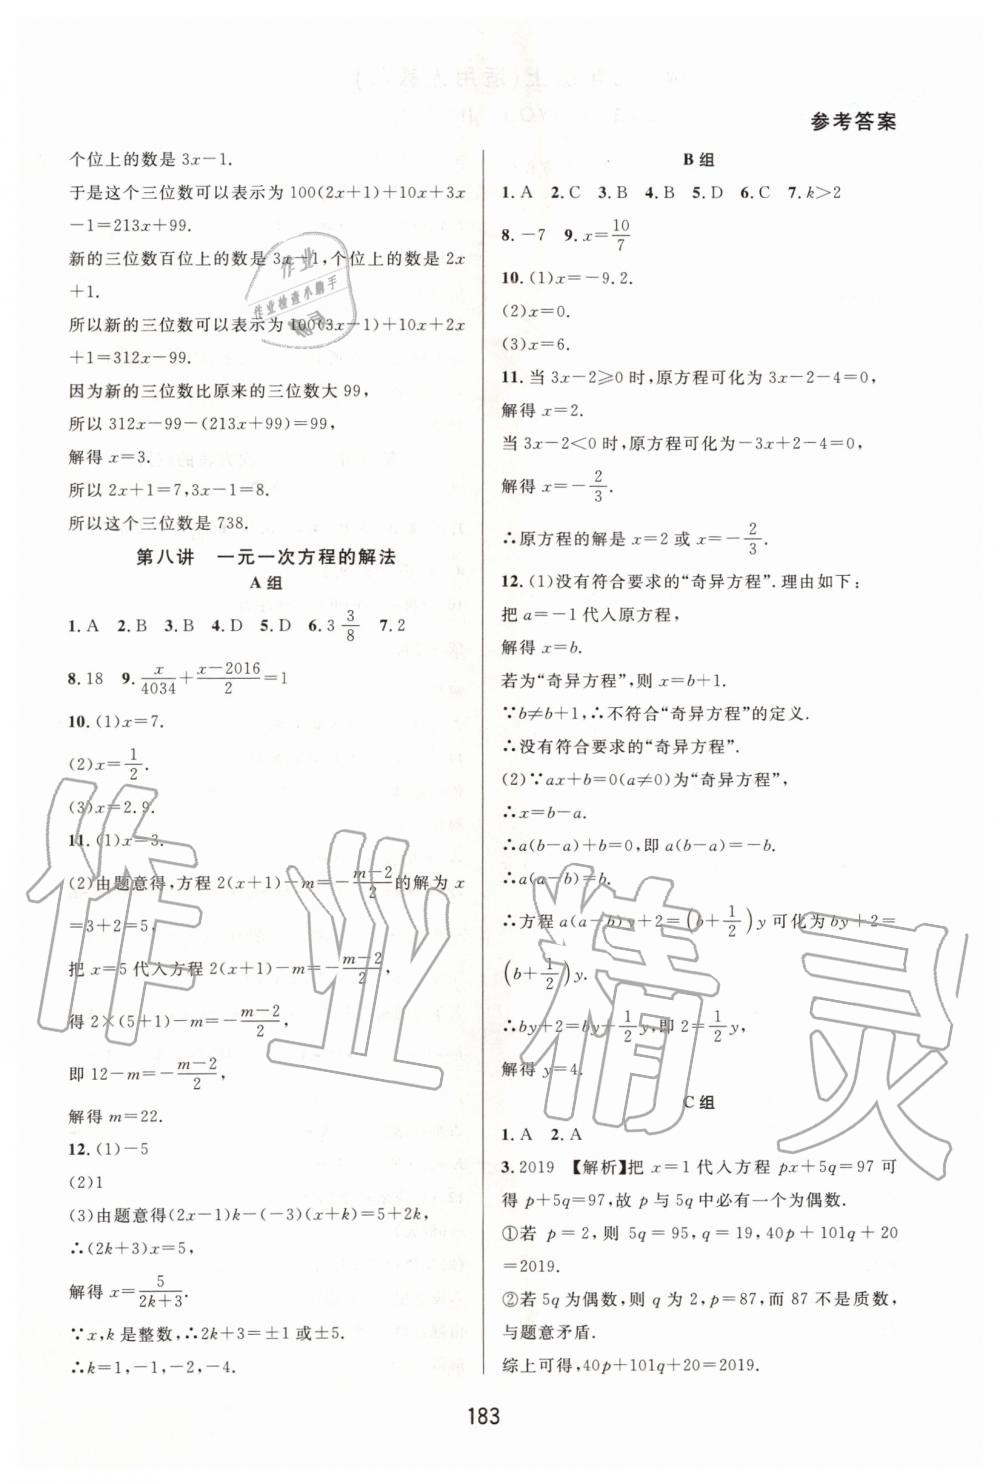 参考答案
个位上的数是 3x-1.
于是这个三位数可以表示为 100(2x+1)+10x+3x
-1=213x+99.
新的三位数百位上的数是 3x-1,个位上的数是 2x
+1.
所以新的三位数可以表示为 100(3x-1)+10x+2x
+1=312x-99.
因为新的三位数比原来的三位数大 99,
所以 312x-99-(213x+99)=99,
解得 x=3.
所以 2x+1=7,3x-1=8.
所以这个三位数是 738.
第八讲 一元一次方程的解法
A 组
1. A 2. B 3. B 4. D 5. D 6. 3 3/8 7. 2
8. 18 9. x/4034+(x-2016)/2=1
10. (1)x=7.
(2)x=1/2.
(3)x=2.9.
11. (1)x=3.
(2)由题意得,方程 2(x+1)-m=-(m-2)/2的解为 x
=3+2=5,
把 x=5 代入方程 2(x+1)-m=-(m-2)/2,
得 2×(5+1)-m=-(m-2)/2,
即 12-m=-(m-2)/2,
解得 m=22.
12. (1)-5
(2)1
(3)由题意得(2x-1)k-(-3)(x+k)=5+2k,
∴(2k+3)x=5,
解得 x=5/(2k+3).
∵x,k 是整数,∴2k+3=±1 或±5.
∴k=1,-1,-2,-4.
B 组
1. A 2. C 3. B 4. B 5. D 6. C 7. k>2
8. -7 9. x=10/7
10. (1)x=-9.2.
(2)x=0.
(3)x=6.
11. 当 3x-2≥0 时,原方程可化为 3x-2-4=0,
解得 x=2.
当 3x-2<0 时,原方程可化为-3x+2-4=0,
解得 x=-2/3.
∴原方程的解是 x=2 或 x=-2/3.
12. (1)没有符合要求的“奇异方程”.理由如下:
把 a=-1 代入原方程,
解得 x=b.
若为“奇异方程”,则 x=b+1.
∵b≠b+1,∴不符合“奇异方程”的定义.
∴没有符合要求的“奇异方程”.
(2)∵ax+b=0(a≠0)为“奇异方程”,
∴x=b-a.
∴a(b-a)+b=0,即 a(b-a)=-b.
∴a(a-b)=b.
∴方程 a(a-b)y+2=(b+1/2)y 可化为 by+2=
(b+1/2)y.
∴by+2=by+1/2y,即 2=1/2y,
解得 y=4.
C 组
1. A 2. A
3. 2019 【解析】把 x=1 代入方程 px+5q=97 可
得 p+5q=97,故 p 与 5q 中必有一个为偶数.
①若 p=2,则 5q=95,q=19,40p+101q+20
=2019.
②若 5q 为偶数,则 q 为 2,p=87,而 87 不是质数,
与题意矛盾.
综上可得,40p+101q+20=2019.
183
作业
作业检查小助手
作业精灵